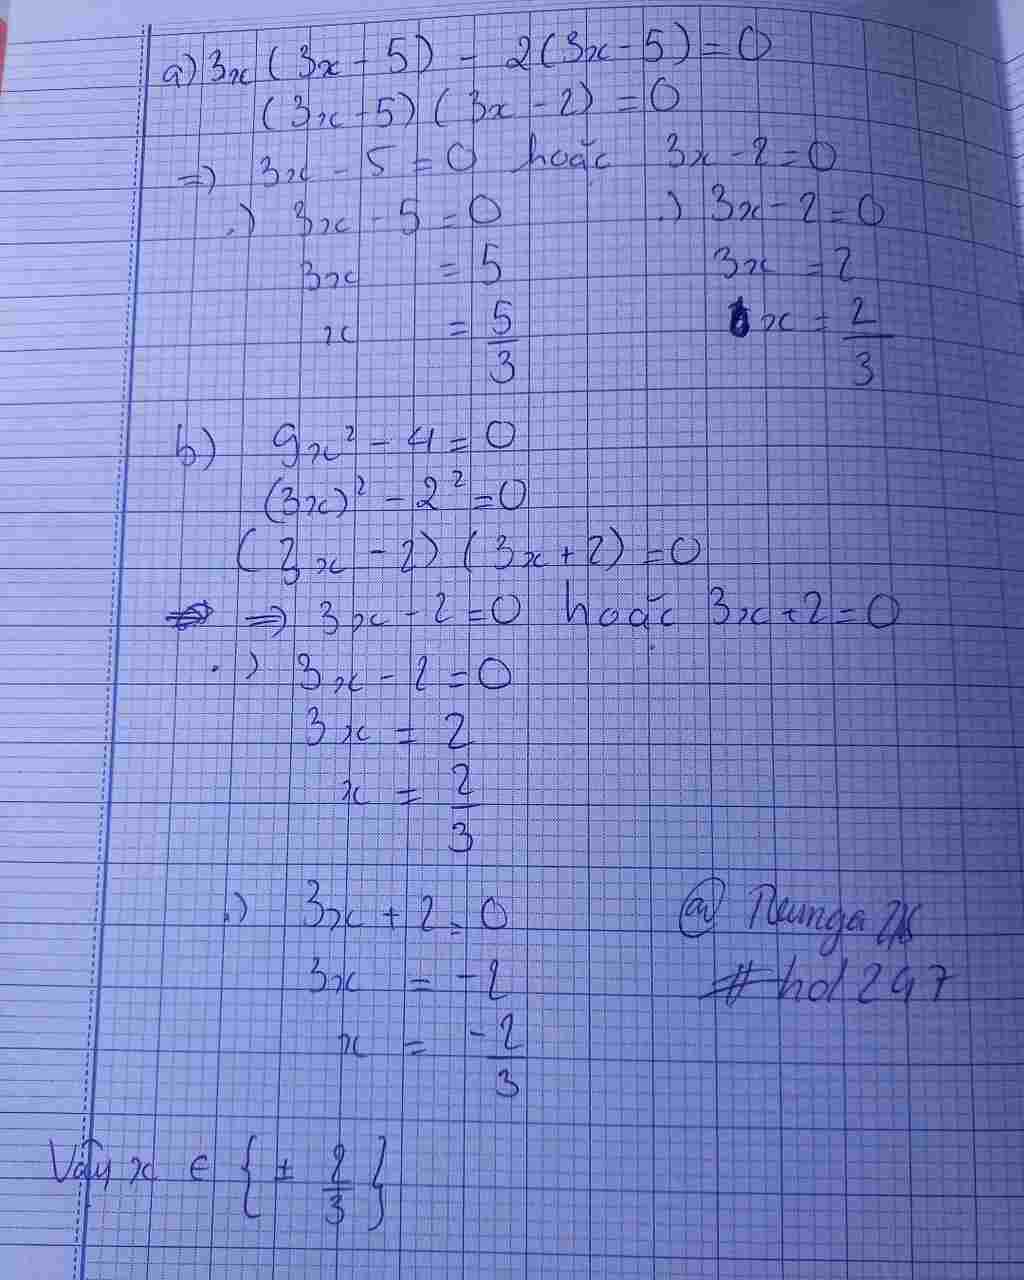 a) 3x (3x - 5) - 2(3x - 5) = 0
(3x - 5) (3x - 2) = 0
=) 3x - 5 = 0 hoặc 3x - 2 = 0
.) 3x - 5 = 0 .) 3x - 2 = 0
3x = 5 3x = 2
x = 5/3 x = 2/3
b) 9x² - 4 = 0
(3x)² - 2² = 0
(3x - 2) (3x + 2) = 0
=) 3x - 2 = 0 hoặc 3x + 2 = 0
.) 3x - 2 = 0
3x = 2
x = 2/3
.) 3x + 2 = 0 @
3x = -2 # hd 247
x = -2/3
Vậy x ∈ { ± 2/3 }